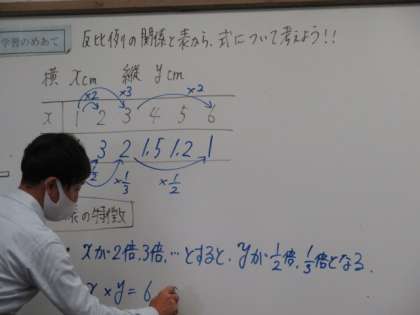 学習のめあて 反比例の関係と表から、式について考えよう!!
横 xcm 縦 ycm
×2 ×3 ×2
x 1 2 3 4 5 6
3 2 1.5 1.2 1
1/3 ×1/2
表の特徴
xが2倍、3倍、…とすると、yが1/2倍、1/3倍となる。
x × y = 6